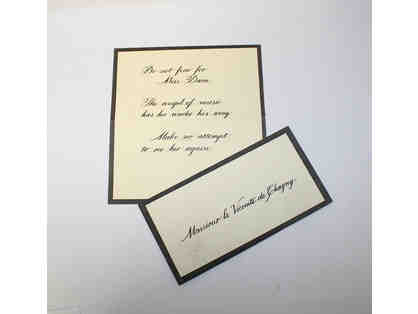 Do not fear for
Miss Daae.
The angel of music
has her under her wing.
Make no attempt
to see her again.
Monsieur le Vicomte de Chagny.